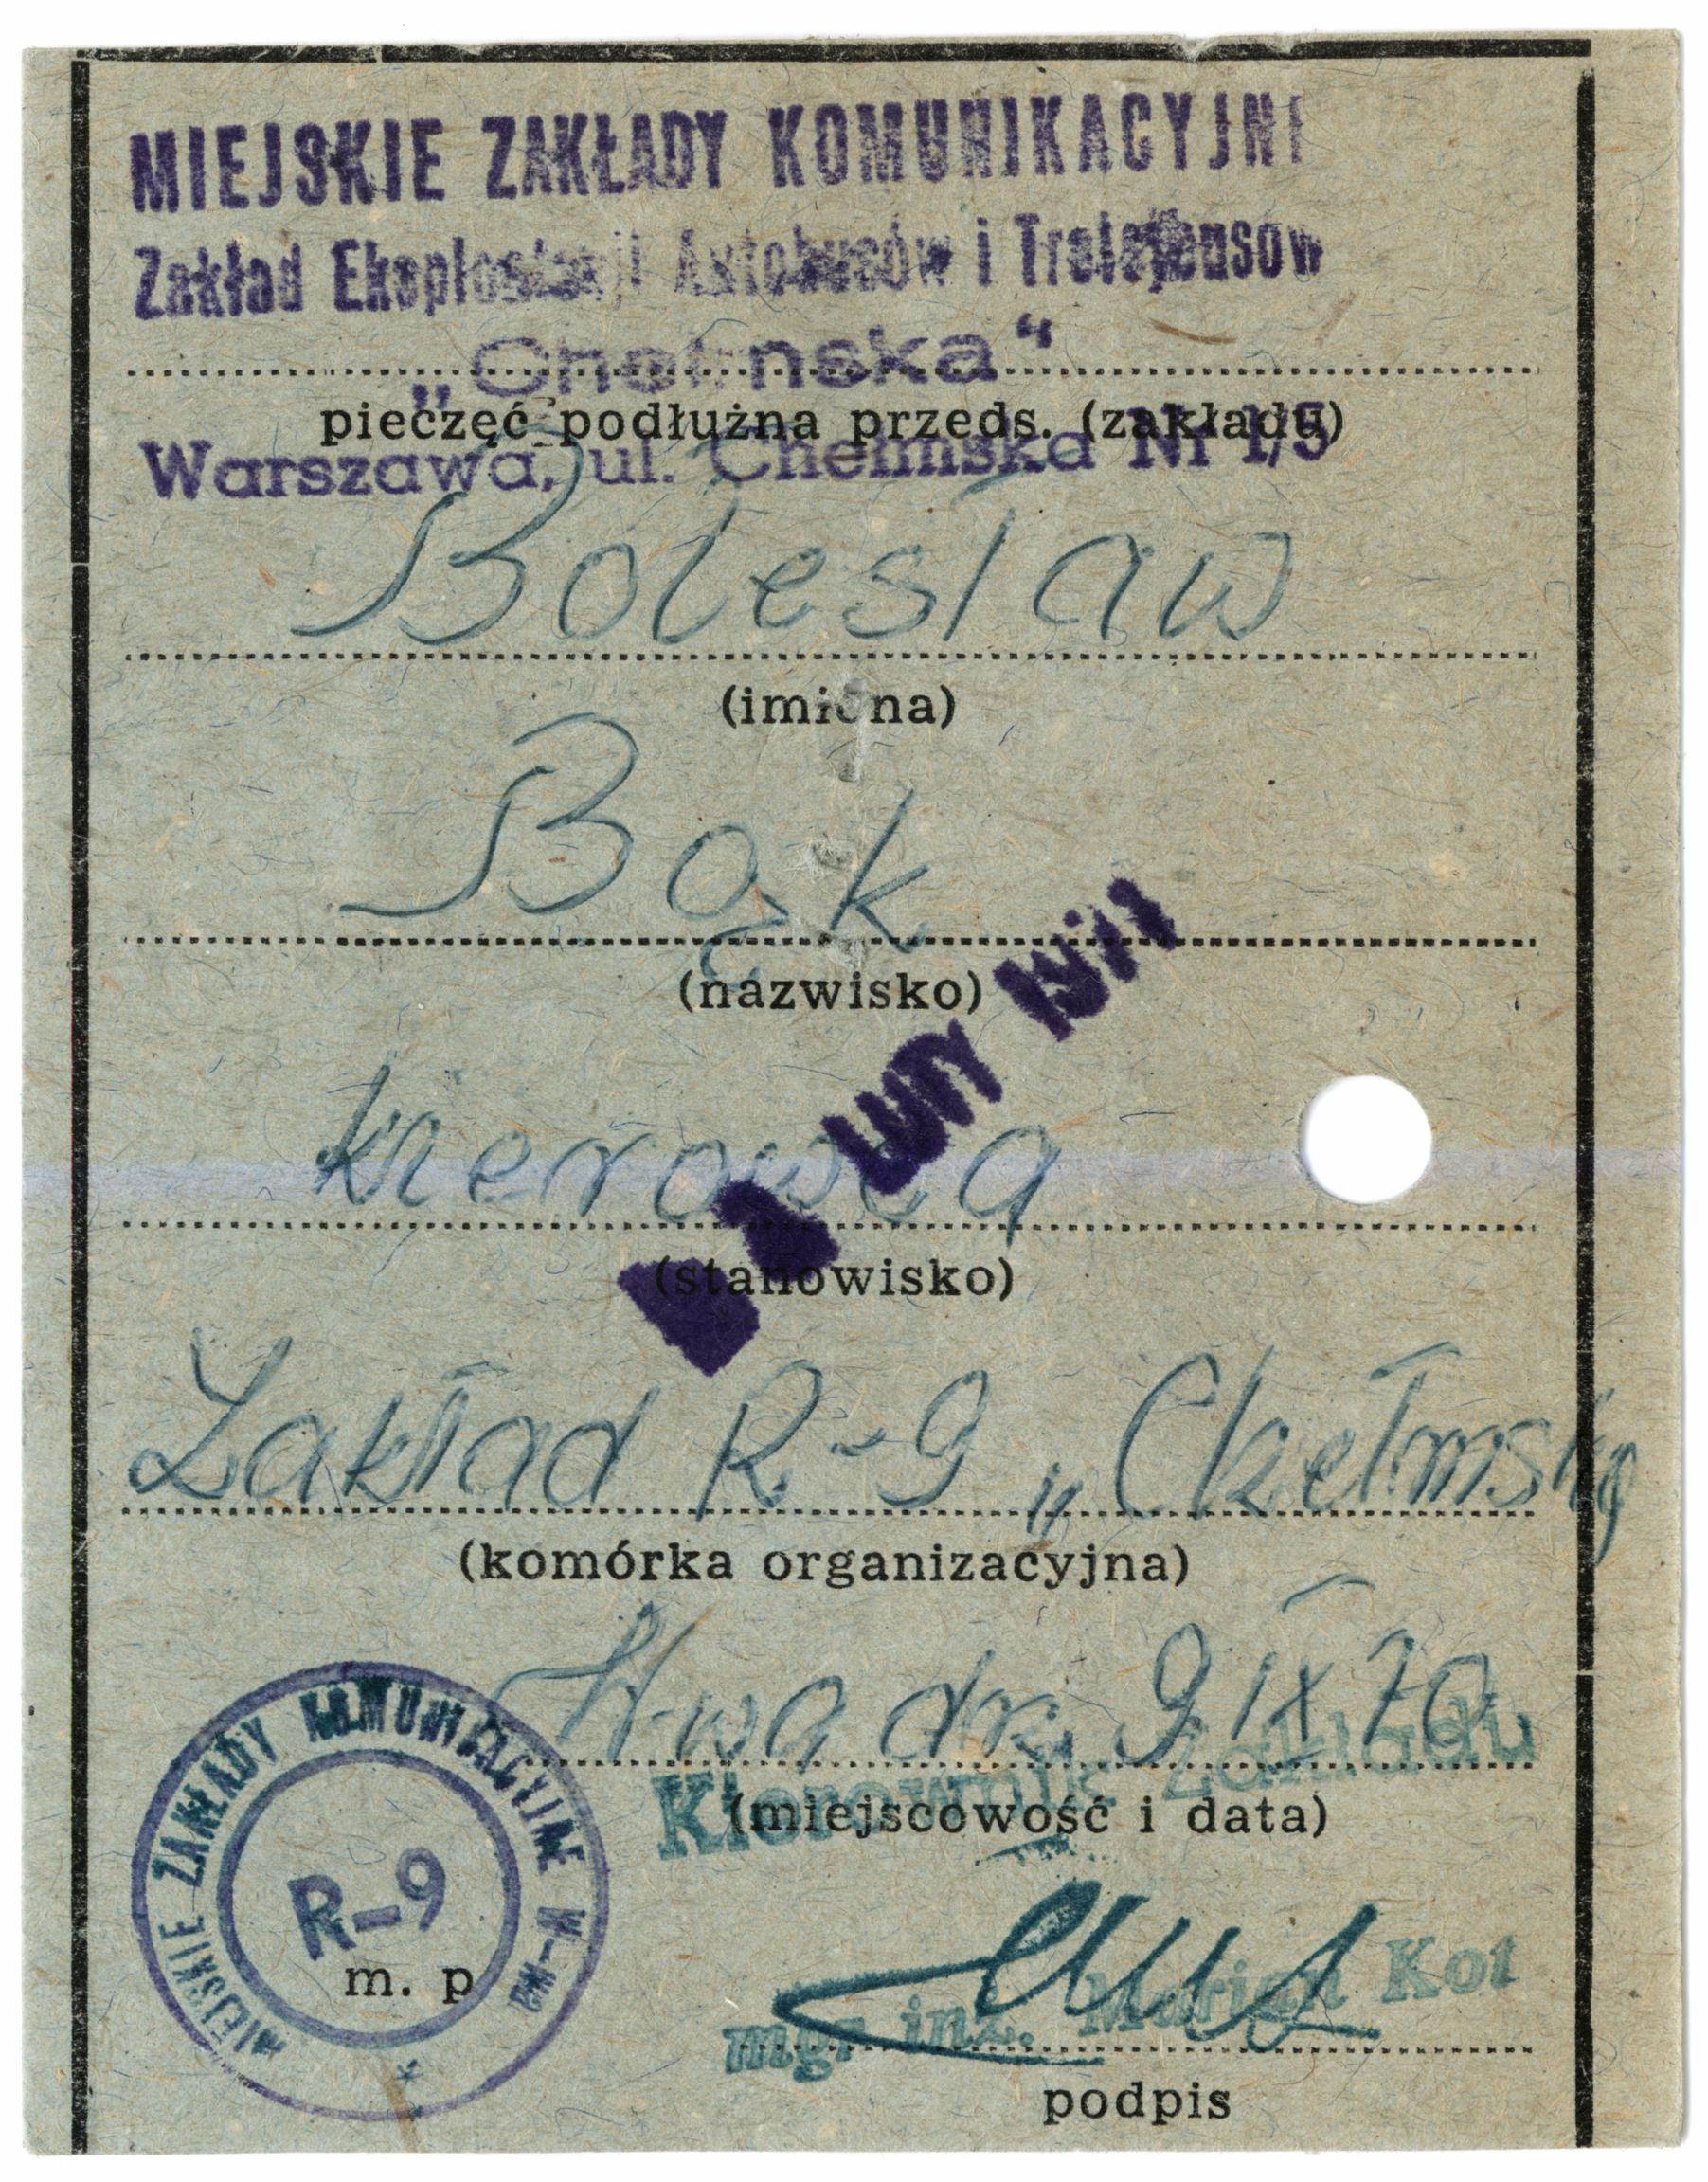 MIEJSKIE ZAKŁADY KOMUNIKACYJNE
Zakład Eksploatacji Autobusów i Trolejbusów
„Chełmska“
pieczęć podłużna przeds. (zakładu)
Warszawa, ul. Chełmska Nr 1/5
Bolesław
(imiona)
Bąk
(nazwisko)
kierowca
(stanowisko)
Zakład R-9 „Chełmska
(komórka organizacyjna)
W-wa dn. 9 IX 70
Kierownik Zakładu
(miejscowość i data)
MIEJSKIE ZAKŁADY KOMUNIKACYJNE W-WA
R-9
m. p
mgr inż. Marian Kot
podpis